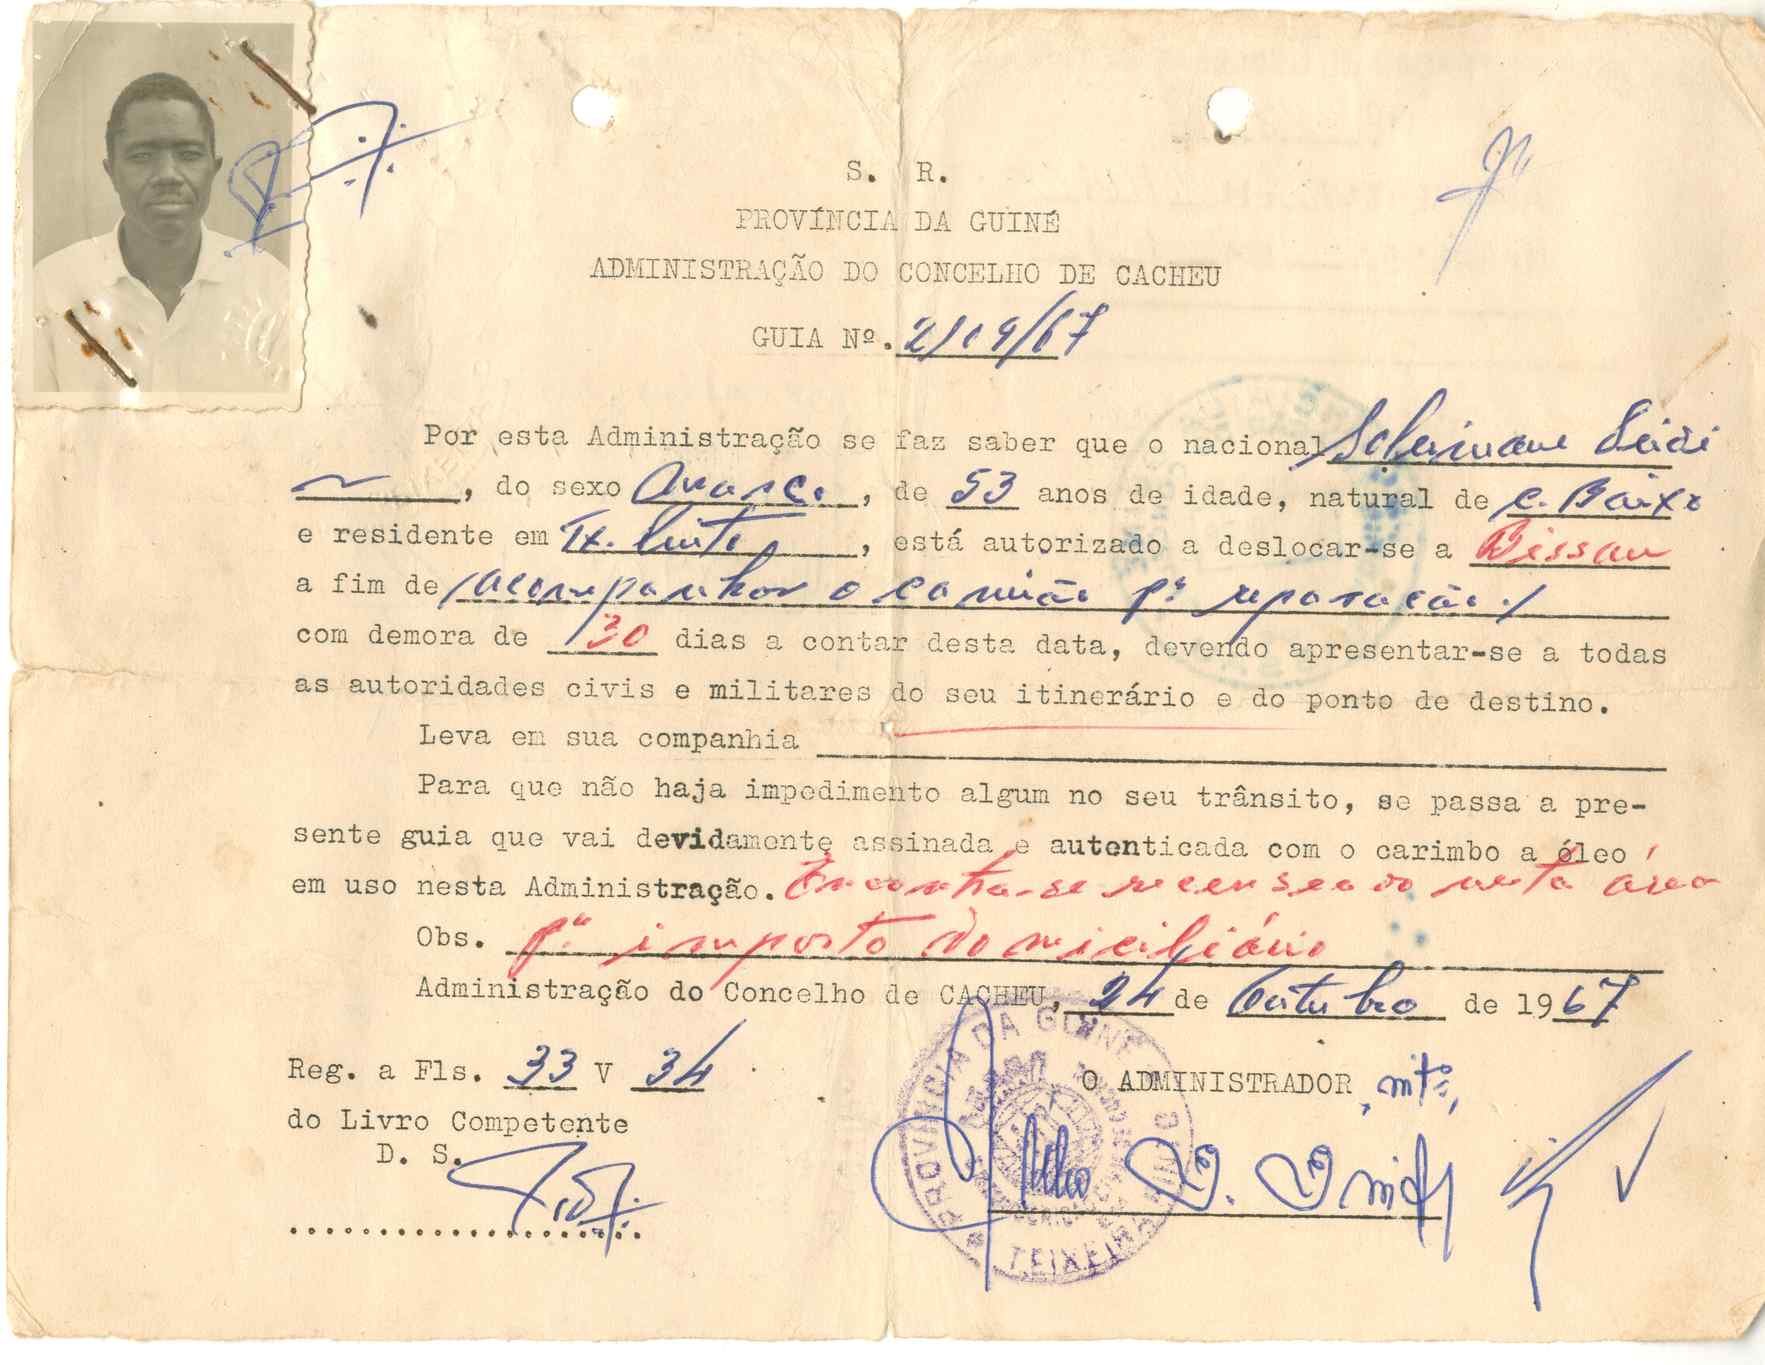 S. R.
PROVÍNCIA DA GUINÉ
ADMINISTRAÇÃO DO CONCELHO DE CACHEU
GUIA Nº. 2/19/67
Por esta Administração se faz saber que o nacional Soleimane Seidi
, do sexo masc., de 53 anos de idade, natural de C. Baixo
e residente em Tx. Pinto, está autorizado a deslocar-se a Bissau
a fim de acompanhar o camião pª reparação
com demora de 30 dias a contar desta data, devendo apresentar-se a todas
as autoridades civis e militares do seu itinerário e do ponto de destino.
Leva em sua companhia
Para que não haja impedimento algum no seu trânsito, se passa a pre-
sente guia que vai devidamente assinada e autenticada com o carimbo a óleo
em uso nesta Administração. Encontra-se recenseado nesta área
Obs. pª imposto domiciliário
Administração do Concelho de CACHEU, 24 de Outubro de 1967
Reg. a Fls. 33 V 34
O ADMINISTRADOR, intº,
do Livro Competente
D. S.
PROVÍNCIA DA GUINÉ
TEIXEIRA PINTO